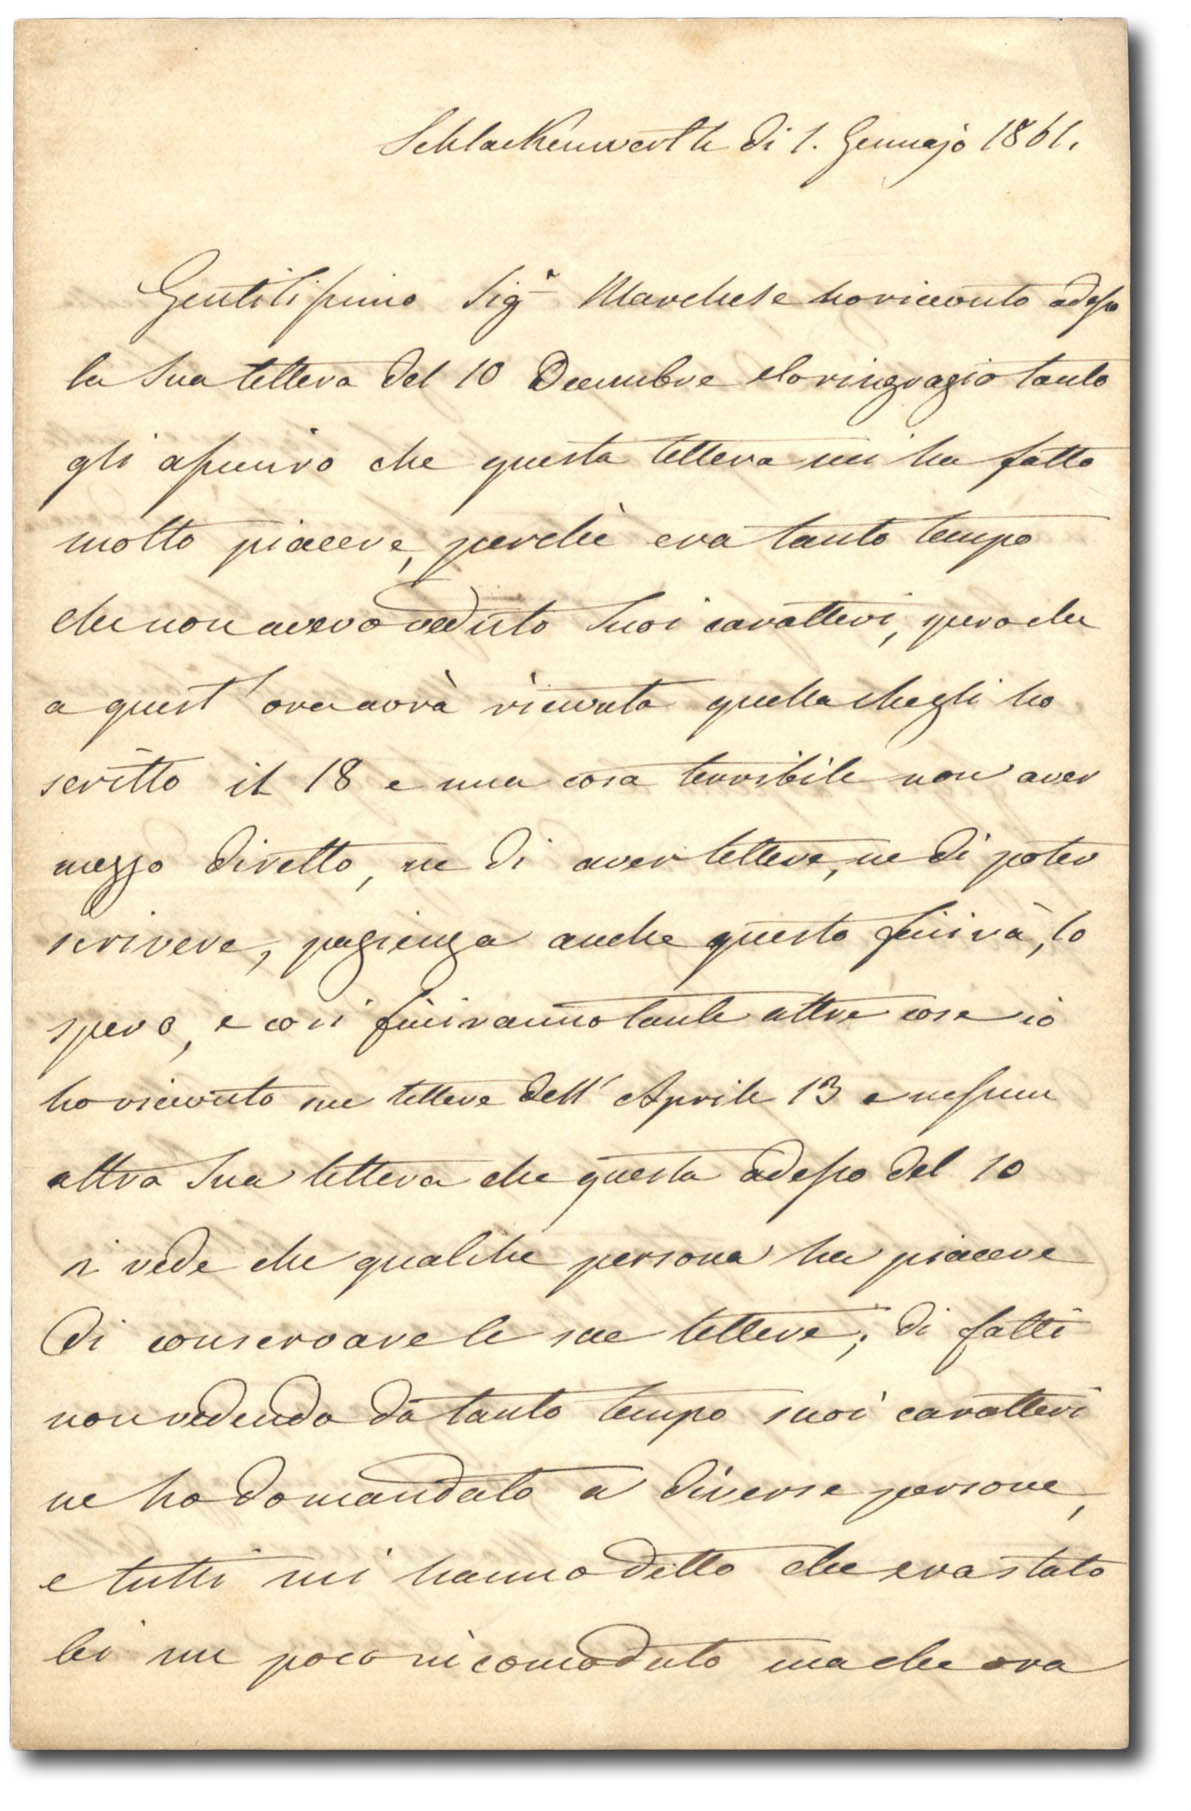 Schlackenwerth di 1. Gennajo 1861.
Gentilissimo Sigr Marchese ho ricevuto adesso
la Sua lettera del 10 Decembre e lo ringragio tanto
gli assicuro che questa lettera mi ha fatto
molto piacere, perchè era tanto tempo
che non avevo veduto Suoi caratteri, spero che
a quest' ora avrà ricevuto quella che gli ho
scritto il 18 e una cosa terribile non aver
mezzo diretto, ne di aver lettere, ne di poter
scrivere, pazienza anche questo finirà, lo
spero, e cosi finiranno tante altre cose io
ho ricevuto sue lettere dell' Aprile 13 e nessun
altra Sua lettera che questa adesso del 10
si vede che qualche persona ha piacere
di conservare le sue lettere; di fatti
non vedendo da tanto tempo suoi caratteri
ne ho domandato a diverse persone,
e tutti mi hanno detto che era stato
lei un poco incomodato ma che ora